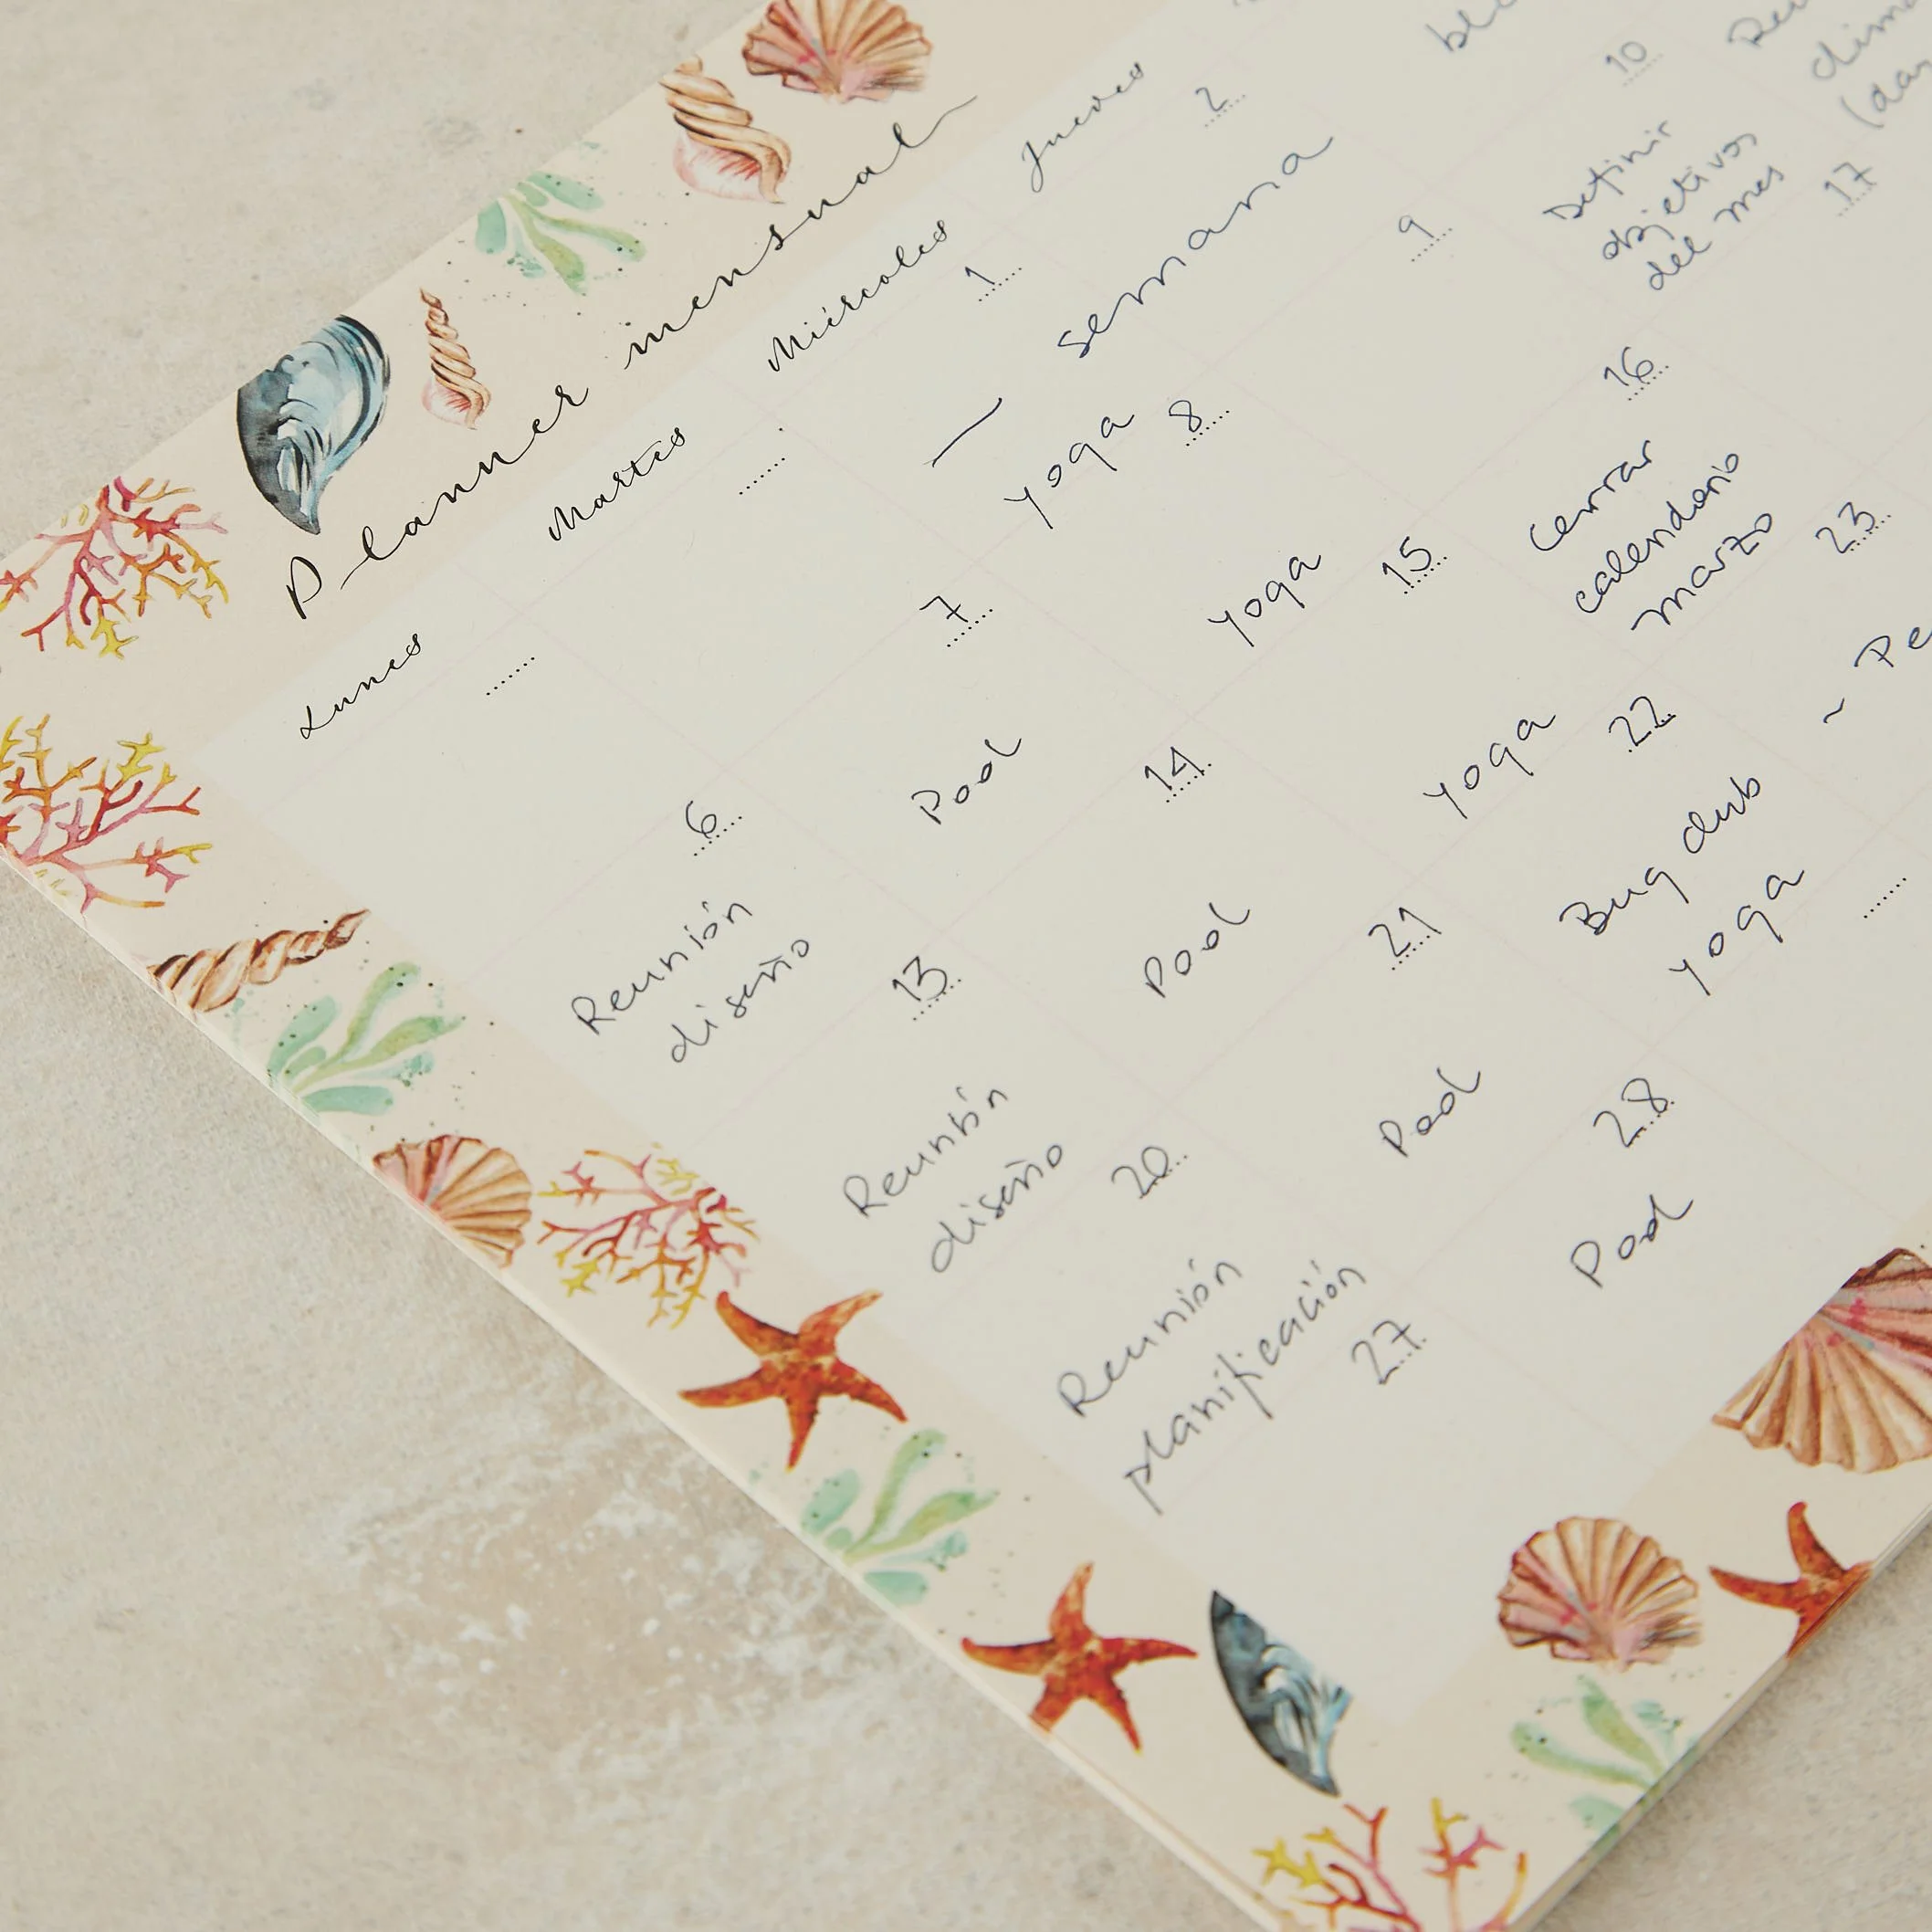 Planner mensual
Lunes Martes Miércoles Jueves
1 2
— semana
yoga
6 7 8 9 10
Reunión
diseño
Pool
yoga
Definir
objetivos
del mes
13 14 15 16 17
Reunión
diseño
Pool
yoga
Cerrar
calendario
marzo
20 21 22 23
Reunión
planificación
Pool
Bug club
yoga
27 28
Pool